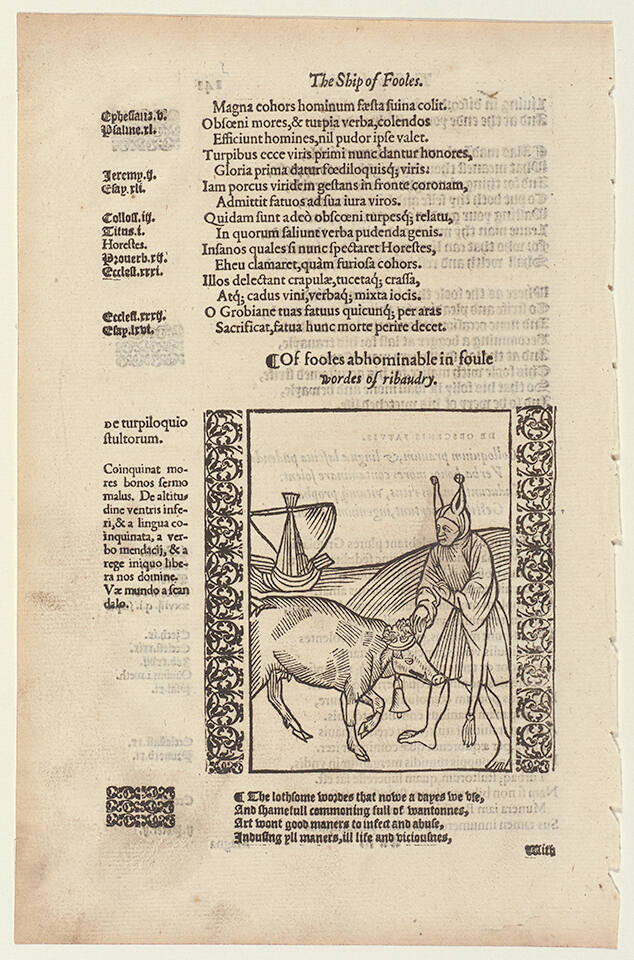 The Ship of Fooles.
Magna cohors hominum fæsta suina colit.
Ephesians.v.
Obscœni mores, & turpia verba, colendos
Psalme.xl.
Efficiunt homines, nil pudor ipse valet.
Turpibus ecce viris primi nunc dantur honores,
Jeremy.ij.
Gloria prima datur fœdiloquisq; viris.
Esay.xli.
Iam porcus viridem gestans in fronte coronam,
Admittit fatuos ad sua iura viros.
Colloss.iij.
Quidam sunt adeò obscœni turpesq; relatu,
Titus.i.
In quorum saliunt verba pudenda genis.
Horestes.
Insanos quales si nunc spectaret Horestes,
Prouerb.xij.
Eheu clamaret, quàm furiosa cohors.
Eccles.xxxi.
Illos delectant crapulæ, tucetaq; crassa,
Atq; cadus vini, verbaq; mixta iocis.
Eccles.xxxij.
O Grobiane tuas fatuus quicunq; per aras
Esay.lxvi.
Sacrificat, fatua hunc morte perire decet.
¶Of fooles abhominable in foule
wordes of ribaudry.
De turpiloquio
stultorum.
Coinquinat mo-
res bonos sermo
malus. De altitu
dine ventris infe-
ri, & a lingua co-
inquinata, a ver-
bo mendacij, & a
rege iniquo libe-
ra nos domine.
Væ mundo a scan
dalo.
¶ The lothsome wordes that nowe a dayes we vse,
And shamefull commoning full of wantonnes,
Art wont good maners to infect and abuse,
Indusing yll maners, ill life and viciousnes,
With